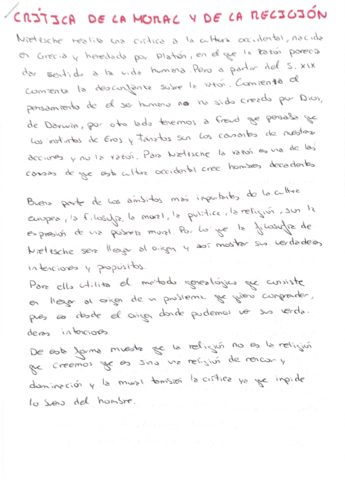 CRÍTICA DE LA MORAL Y DE LA RELIGIÓN
Nietzsche realiza una crítica a la cultura occidental, nacida
en Grecia y heredada por Platón, en el que la razón parecía
dar sentido a la vida humana. Pero a partir del S. XIX
comienza la desconfianza sobre la razón. Comienza el
pensamiento de el ser humano no ha sido creado por Dios,
de Darwin, por otro lado tenemos a Freud que pensaba que
los instintos de Eros y Tánatos son los causantes de nuestras
acciones y no la razón. Para Nietzsche la razón es una de las
causas de que esta cultura occidental cree hombres decadentes.
Buena parte de los ámbitos más importantes de la cultura
europea, la filosofía, la moral, la política, la religión, son la
expresión de una pobreza moral. Por lo que la filosofía de
Nietzsche será llegar al origen y así mostrar sus verdaderas
intenciones y propósitos.
Para ello utiliza el método genealógico que consiste
en llegar al origen de un problema que quiero comprender,
pues es desde el origen donde podemos ver sus verda-
deras intenciones.
De esta forma muestra que la religión no es la religión
que creemos que es sino una religión de rencor y
dominación y la moral también la crítica ya que impide
lo sano del hombre.